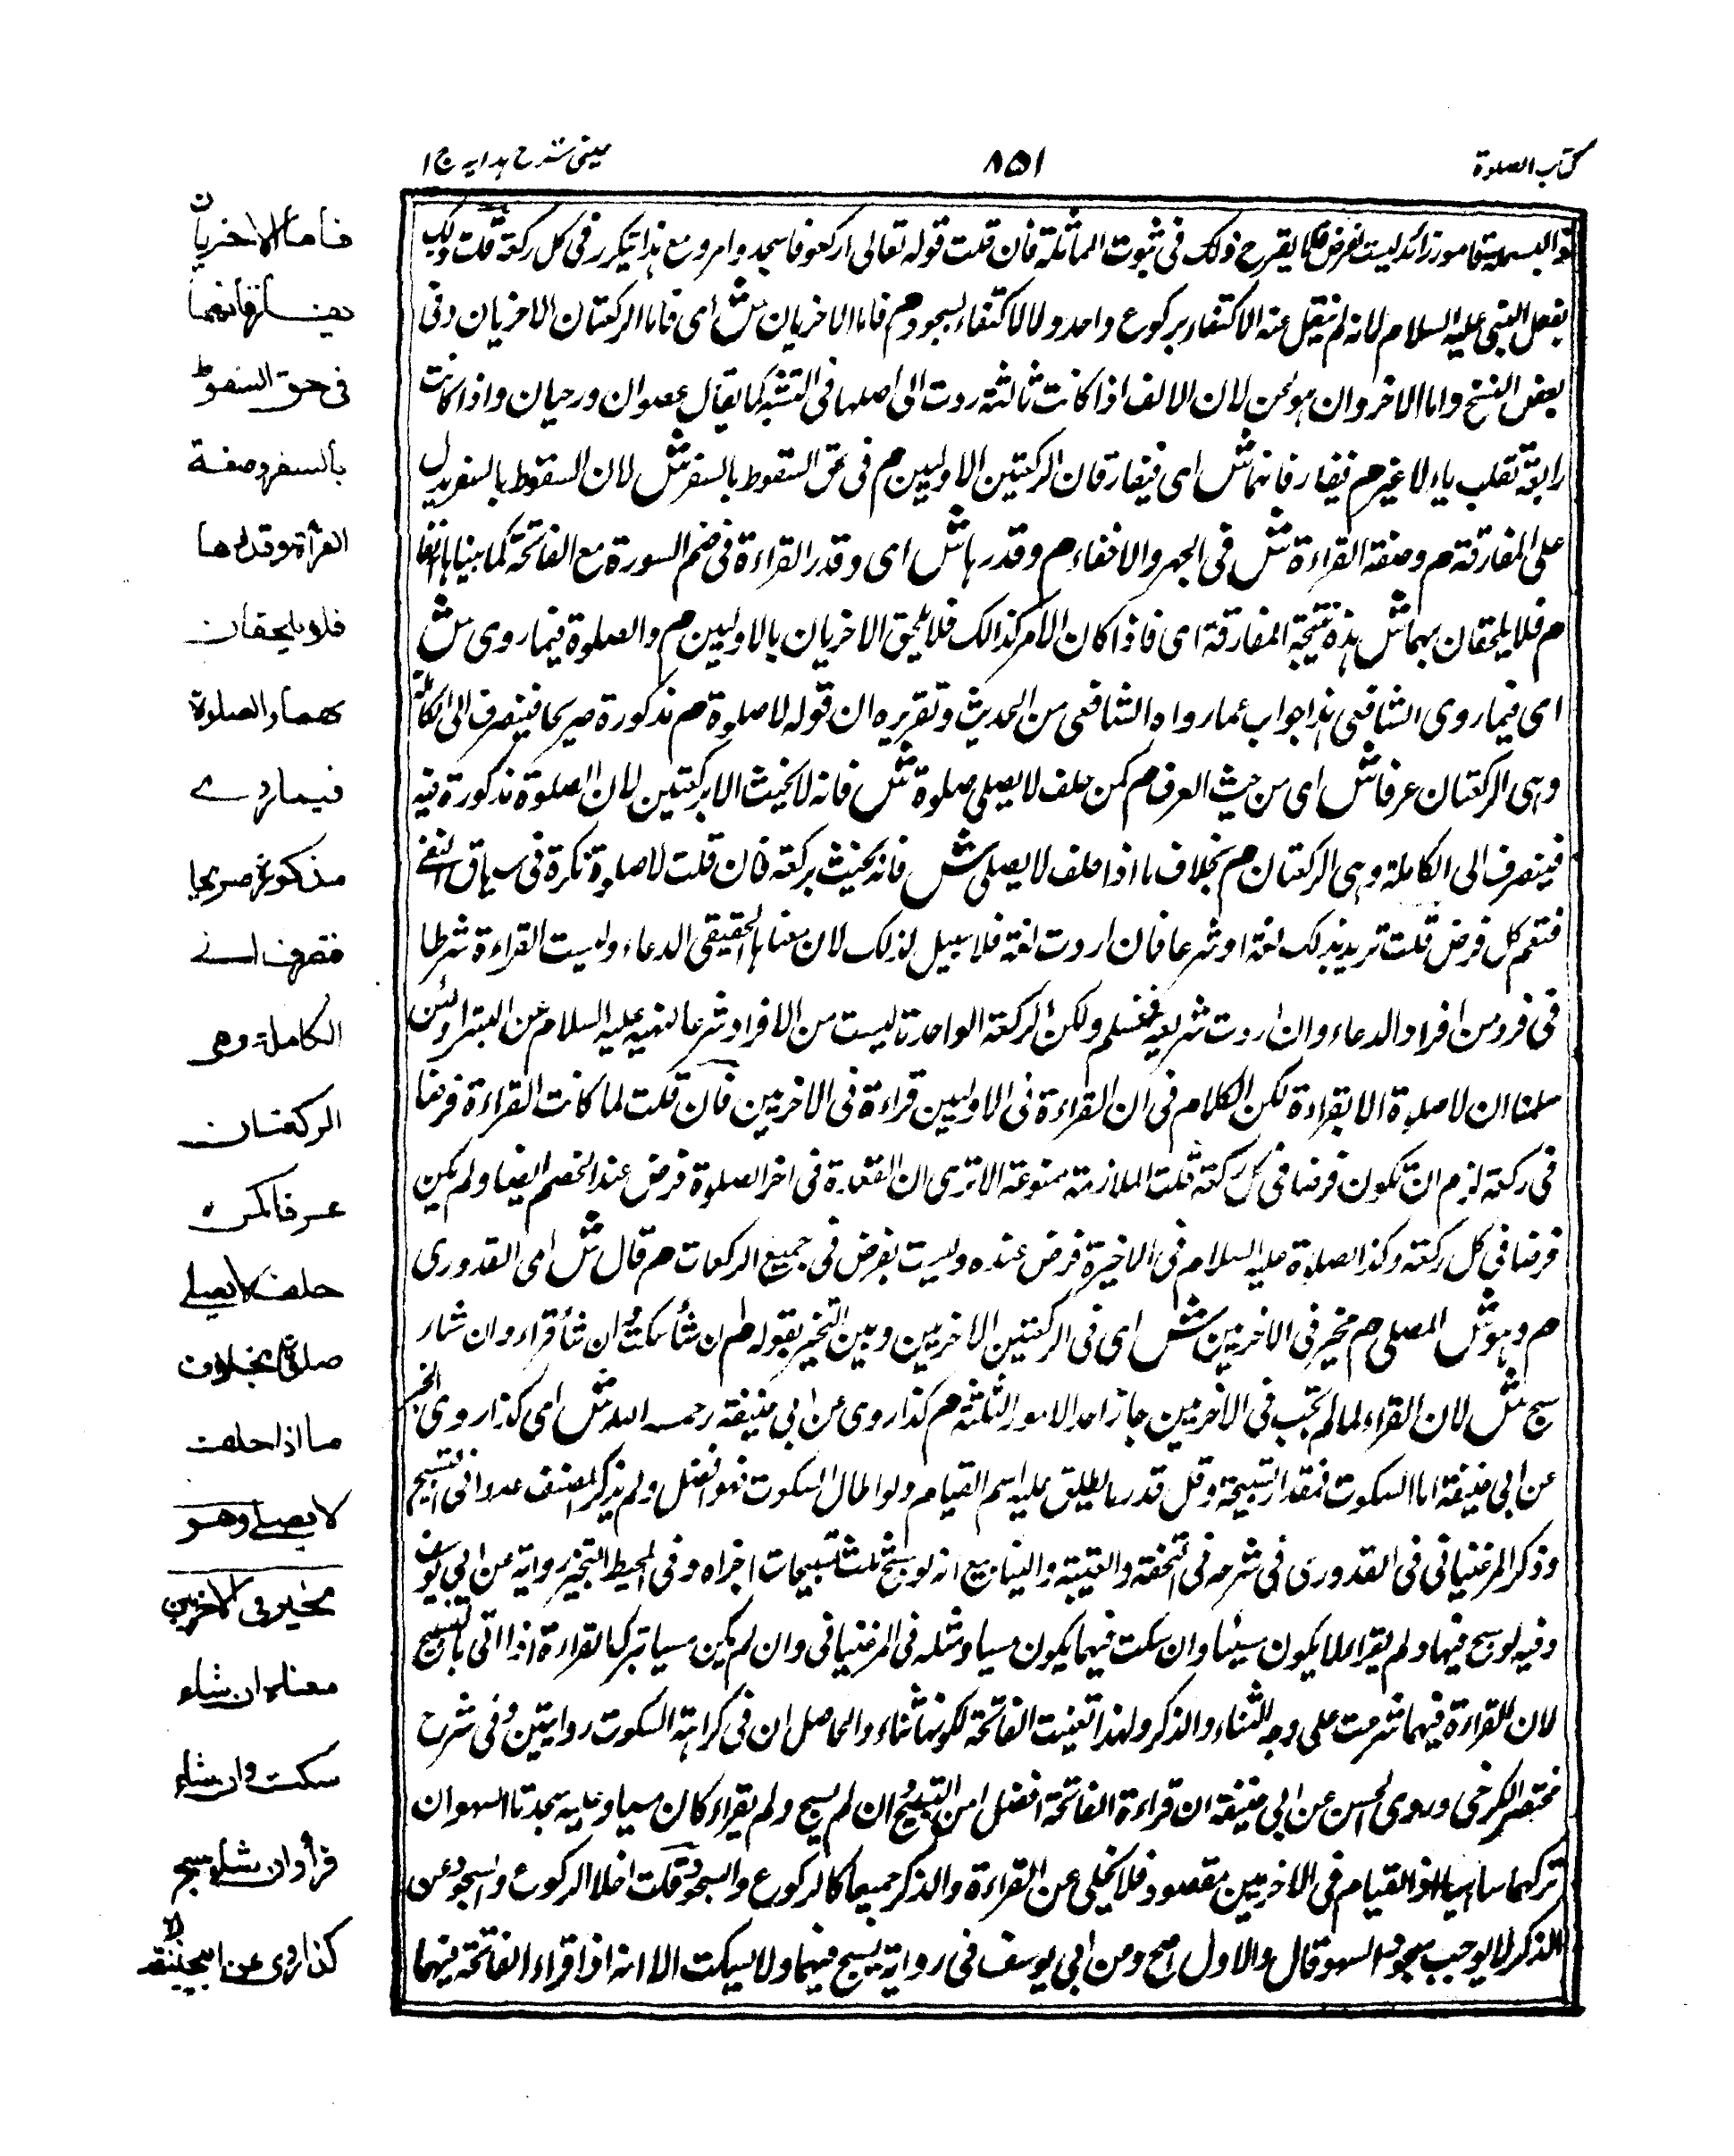 كتاب الصلوة
٨٥١
عينى شرح هدايه ج ا
والبسملة فامور زائدليست بفرض فلا يقدح ذلك فى ثبوت المماثلة فان قلت قوله تعالى اركعوا فاسجدوا امر ومع هذا يتكرر فى كل ركعة قلت ذلك
بفعل النبى عليه السلام لانه لم ينقل عنه الاكتفاء بركوع واحد ولا الاكتفاء بسجود م فاما الاخريان ش اى فاما الركعتان الاخريان وفى
بعض النسخ واما الاخروان هو لحن لان الالف اذا كانت ثالثة ردت الى اصلها فى التثنية كما يقال عصوان ورحيان واذا كانت
رابعة تقلب ياء لا غير م فيفارقانهما ش اى فيفارقان الركعتين الاوليين م فى حق السقوط بالسفر ش لان السقوط بالسفر يدل
على المفارقة م وصفة القراءة ش فى الجهر والاخفاء م وقدرها ش اى وقدر القراءة فى ضم السورة مع الفاتحة كما بيناها انفا
م فلا يلحقان بهما ش هذه نتيجة المفارقة اى فاذا كان الامر كذالك فلا يلحق الاخريان بالاوليين م والصلوة فيما روى ش
اى فيما روى الشافعى هذا جواب عما رواه الشافعى من الحديث وتقريره ان قوله لا صلوة م مذكورة صريحا فينصرف الى الكاملة
وهى الركعتان عرفا ش اى من حيث العرف م كمن حلف لا يصلى صلوة ش فانه لا يحنث الا بركعتين لان الصلوة مذكورة فيه
فينصرف الى الكاملة وهى الركعتان م بخلاف ما اذا حلف لا يصلى ش فانه يحنث بركعة فان قلت لا صلوة نكرة فى سياق النفى
فتعم كل فرض قلت تريد بذلك لغة او شرعا فان اردت لغة فلا سبيل لذلك لان معناها الحقيقى الدعاء وليست القراءة شرطا
فى فرد من افراد الدعاء وان اردت شريعة فمسلم ولكن الركعة الواحدة ليست من الافراد شرعا لنهيه عليه السلام عن البتراء ولئن
سلمنا ان لا صلوة الا بقراءة لكن الكلام فى ان القراءة فى الاوليين قراءة فى الاخريين فان قلت لما كانت القراءة فرضا
فى ركعة لزم ان تكون فرضا فى كل ركعة قلت الملازمة ممنوعة الا ترى ان القعدة فى اخر الصلوة فرض عند الخصم ايضا ولم يكن
فرضا فى كل ركعة وكذا الصلوة عليه السلام فى الاخيرة فرض عنده وليست بفرض فى جميع الركعات م قال ش اى القدورى
م وهو ش المصلى م مخير فى الاخريين ش اى فى الركعتين الاخريين وبين التخير بقوله م ان شاء سكت وان شاء قراء وان شاء
سبح ش لان القراءة لما لم تجب فى الاخريين جاز احد الامور الثلثة م كذا روى عن ابى حنيفة رحمه الله ش اى كذا روى
عن ابى حنيفة اما السكوت فمقدار تسبيحة وقل قدر ما يطلق عليه اسم القيام ولو اطال السكوت فهو افضل ولم يذكر المصنف عددا فى التسبيح
وذكر المرغنيانى فى القدورى فى شرحه فى التحفة والقنية والينابيع انه لو سبح ثلث تسبيحات اجزاه وفى المحيط التخيير رواية عن ابى يوسف
وفيه لو سبح فيها ولم يقراء لا يكون مسيئا وان سكت فيهما يكون مسيا ومثله فى المرغنيانى وان لم يكن مسيا بترك القراءة اذا اتى بالتسبيح
لان القراءة فيهما شرعت على وجه الثناء والذكر ولهذا تعينت الفاتحة لكونها ثناء والحاصل ان فى كراهة السكوت روايتين وفى شرح
مختصر الكرخى وروى الحسن عن ابى حنيفة ان قراءة الفاتحة افضل من التسبيح وان لم يسبح ولم يقراء كان مسيا وعليه سجدتا السهو ان
تركهما ساهيا لان القيام فى الاخريين مقصود فلا يخلى عن القراءة والذكر جميعا كالركوع والسجود قلت اخلاء الركوع والسجود عن
الذكر لا يوجب سجود السهو قال والاول اصح وعن ابى يوسف فى رواية يسبح فيهما ولا يسكت الا انه اذا قراء الفاتحة فيهما
فأما الاخريان
يفارقانهما
فى حق السقوط
بالسفر وصفة
القرأة وقدرها
فلا يلحقان
بهما والصلوة
فيما روى
مذكورة صريحا
فتصرف الى
الكاملة وهى
الركعتان
عرفا كمن
حلف لا يصلى
صلوة بخلاف
ما اذا حلف
لا يصلى وهو
مخير فى الاخريين
معناه ان شاء
سكت وان شاء
قرأ وان شاء سبح
كذا روى عن ابى حنيفة